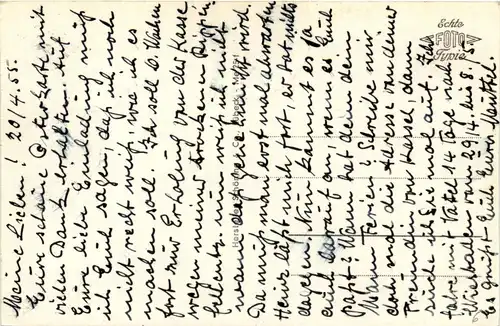 Meine Lieben! 20/4.55
Eure schöne Osterkarte mit
vielen Dank erhalten. Auf
Eure liebe Einladung muß
ich Euch sagen, daß ich noch
nicht recht weiß, wie ich es
machen soll. Ich soll 6 Wochen
fort zur Erholung von der Kasse
wegen meiner trockenen Rippen
fellentz. nun weiß ich nicht
wann das genehmigt wird.
Da muß man erst mal abwarten
Heinz läßt mich fort, er tut nichts
dagegen. Nun kommt es ja
auch darauf an, wenn es Euch
paßt? Wann hat denn
Mann Ferien? Schreibe mir
doch mal die Adresse von deiner
Freundin von Kassel, dann
suche ich Sie mal auf. Ich
fahre mit Vatel 14 Tage nach
Wiesbaden vom 29/4. bis 8.5.
Es grüßt Euch Eure
Echte
FOTO
Typie
Horst Lay